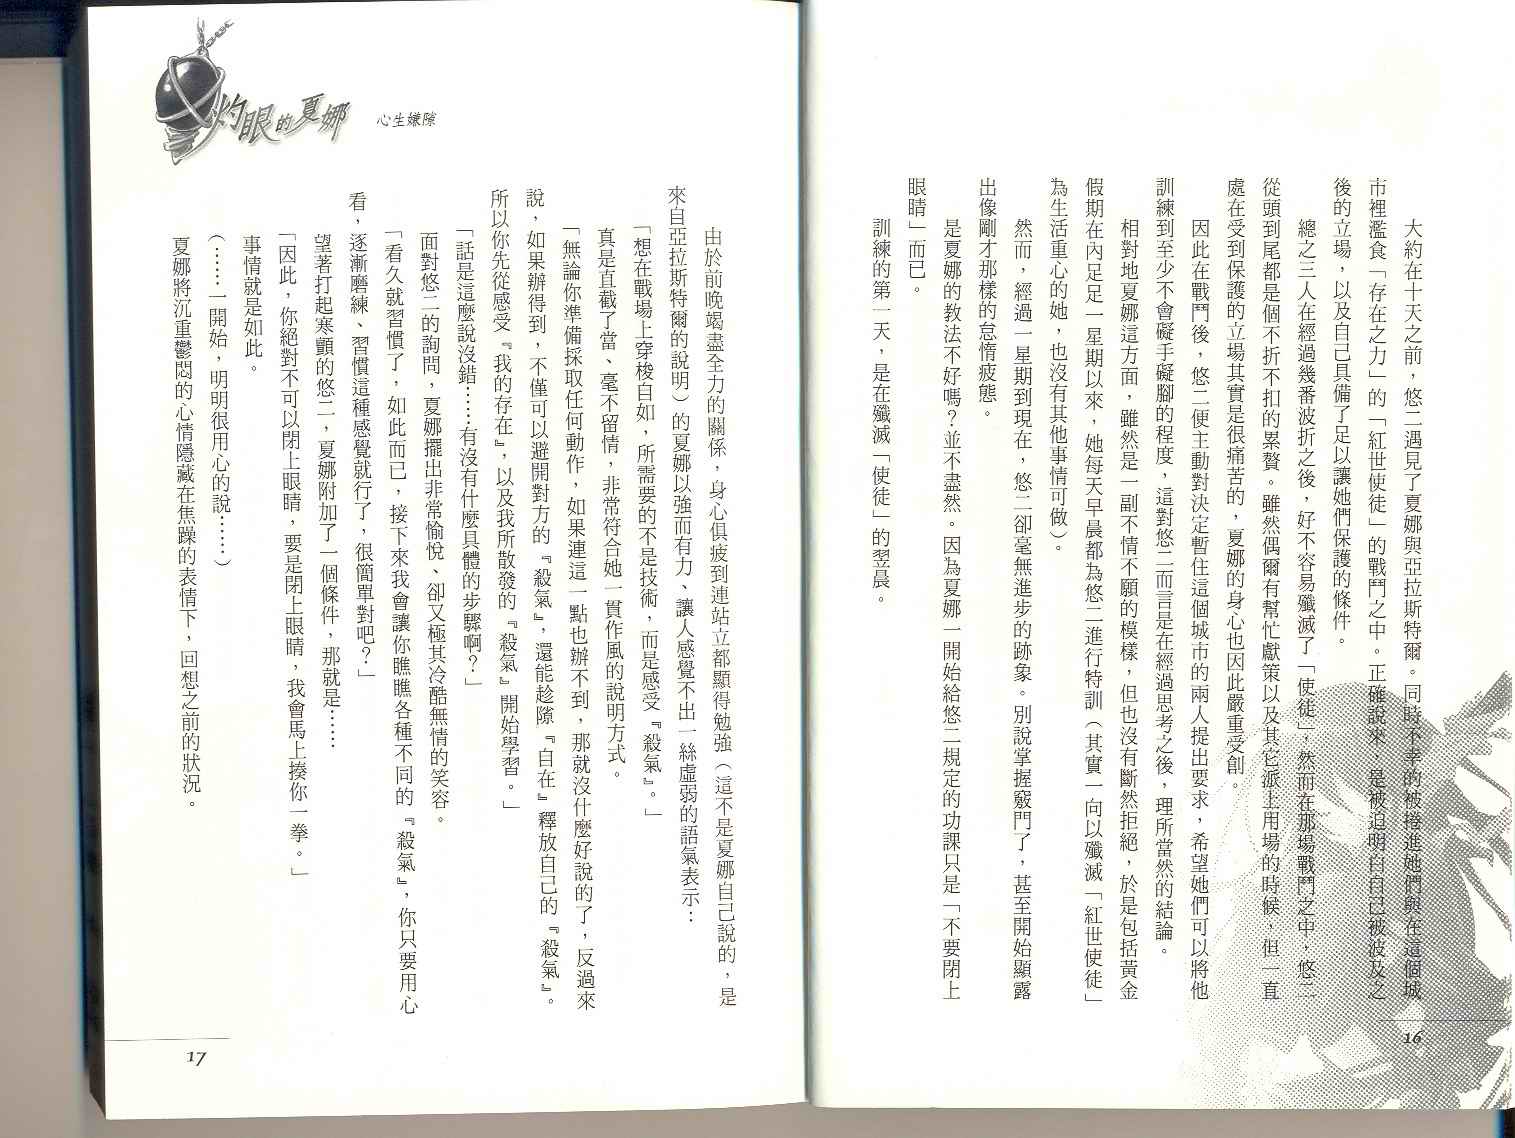 大約在十天之前，悠二遇見了夏娜與亞拉斯特爾。同時不幸的被捲進她們與在這個城
市裡濫食「存在之力」的「紅世使徒」的戰鬥之中。正確說來，是被迫明白自己被波及之
後的立場，以及自己具備了足以讓她們保護的條件。
總之三人在經過幾番波折之後，好不容易殲滅了「使徒」，然而在那場戰鬥之中，悠二
從頭到尾都是個不折不扣的累贅。雖然偶爾有幫忙獻策以及其它派上用場的時候，但一直
處在受到保護的立場其實是很痛苦的，夏娜的身心也因此嚴重受創。
因此在戰鬥後，悠二便主動對決定暫住這個城市的兩人提出要求，希望她們可以將他
訓練到至少不會礙手礙腳的程度，這對悠二而言是在經過思考之後，理所當然的結論。
相對地夏娜這方面，雖然是一副不情不願的模樣，但也沒有斷然拒絕，於是包括黃金
假期在內足足一星期以來，她每天早晨都為悠二進行特訓（其實一向以殲滅「紅世使徒」
為生活重心的她，也沒有其他事情可做）。
然而，經過一星期到現在，悠二卻毫無進步的跡象。別說掌握竅門了，甚至開始顯露
出像剛才那樣的怠惰疲態。
是夏娜的教法不好嗎？並不盡然。因為夏娜一開始給悠二規定的功課只是「不要閉上
眼睛」而已。
訓練的第一天，是在殲滅「使徒」的翌晨。
16
灼眼的夏娜
心生嫌隙
由於前晚竭盡全力的關係，身心俱疲到連站立都顯得勉強（這不是夏娜自己說的，是
來自亞拉斯特爾的說明）的夏娜以強而有力、讓人感覺不出一絲虛弱的語氣表示：
「想在戰場上穿梭自如，所需要的不是技術，而是感受『殺氣』。」
真是直截了當、毫不留情，非常符合她一貫作風的說明方式。
「無論你準備採取任何動作，如果連這一點也辦不到，那就沒什麼好說的了，反過來
說，如果辦得到，不僅可以避開對方的『殺氣』，還能趁隙『自在』釋放自己的『殺氣』。
所以你先從感受『我的存在』，以及我所散發的『殺氣』開始學習。」
「話是這麼說沒錯……有沒有什麼具體的步驟啊？」
面對悠二的詢問，夏娜擺出非常愉悅、卻又極其冷酷無情的笑容。
「看久就習慣了，如此而已，接下來我會讓你瞧瞧各種不同的『殺氣』，你只要用心
看，逐漸磨練、習慣這種感覺就行了，很簡單對吧？」
望著打起寒顫的悠二，夏娜附加了一個條件，那就是……
「因此，你絕對不可以閉上眼睛，要是閉上眼睛，我會馬上揍你一拳。」
事情就是如此。
（……一開始，明明很用心的說……）
夏娜將沉重鬱悶的心情隱藏在焦躁的表情下，回想之前的狀況。
17